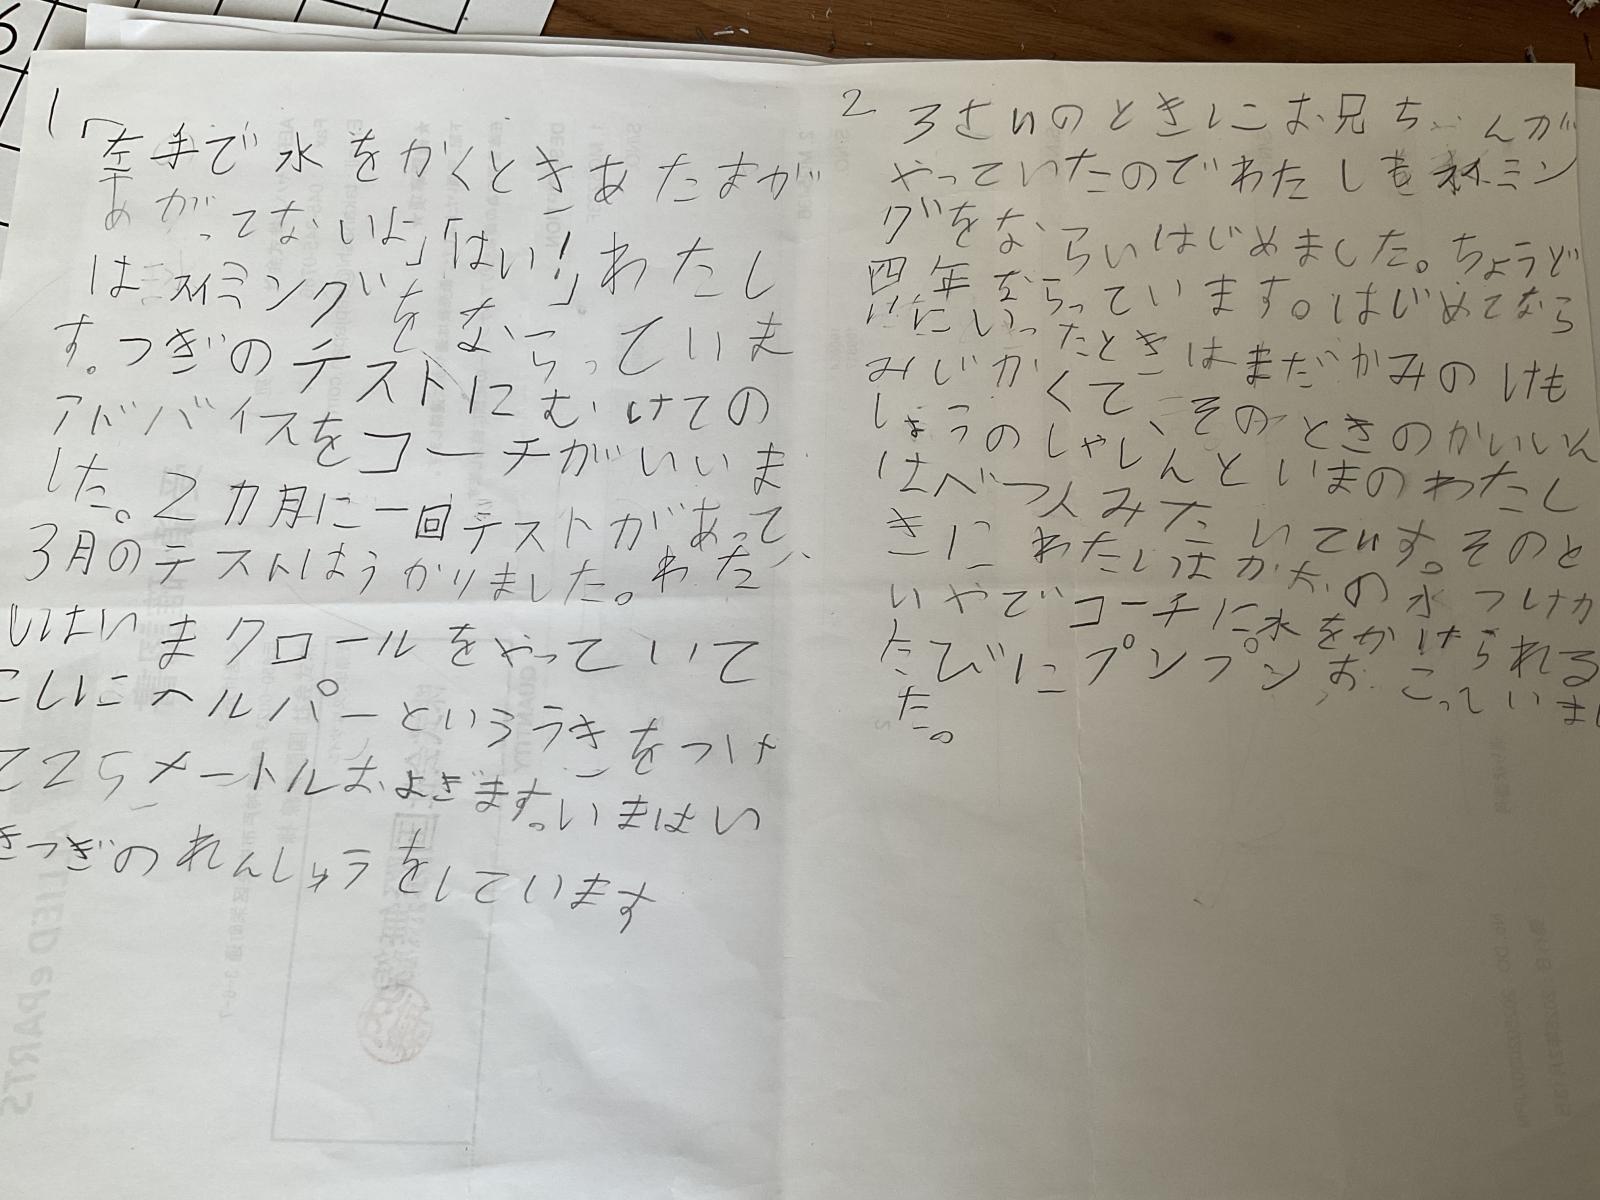 1「左手で水をかくときあたまが
あがってないよ」「はい!」わたし
はスイミングをならっていま
す。つぎのテストにむけての
アドバイスをコーチがいいま
した。2カ月に一回テストがあって
3月のテストはうかりました。わた
しはいまクロールをやっていて
こしにヘルパーといううきをつけ
て25メートルおよぎます。いまはい
きつぎのれんしゅうをしています
2 3さいのときにお兄ちゃんが
やっていたのでわたしもスイミン
グをならいはじめました。ちょうど
四年ならっています。はじめてなら
いにいったときはまだかみのけも
みじかくて、そのときのかいいん
しょうのしゃしんといまのわたし
はべつ人みたいです。そのと
きにわたしはかおの水つけが
いやでコーチに水をかけられる
たびにプンプンおこっていまし
た。